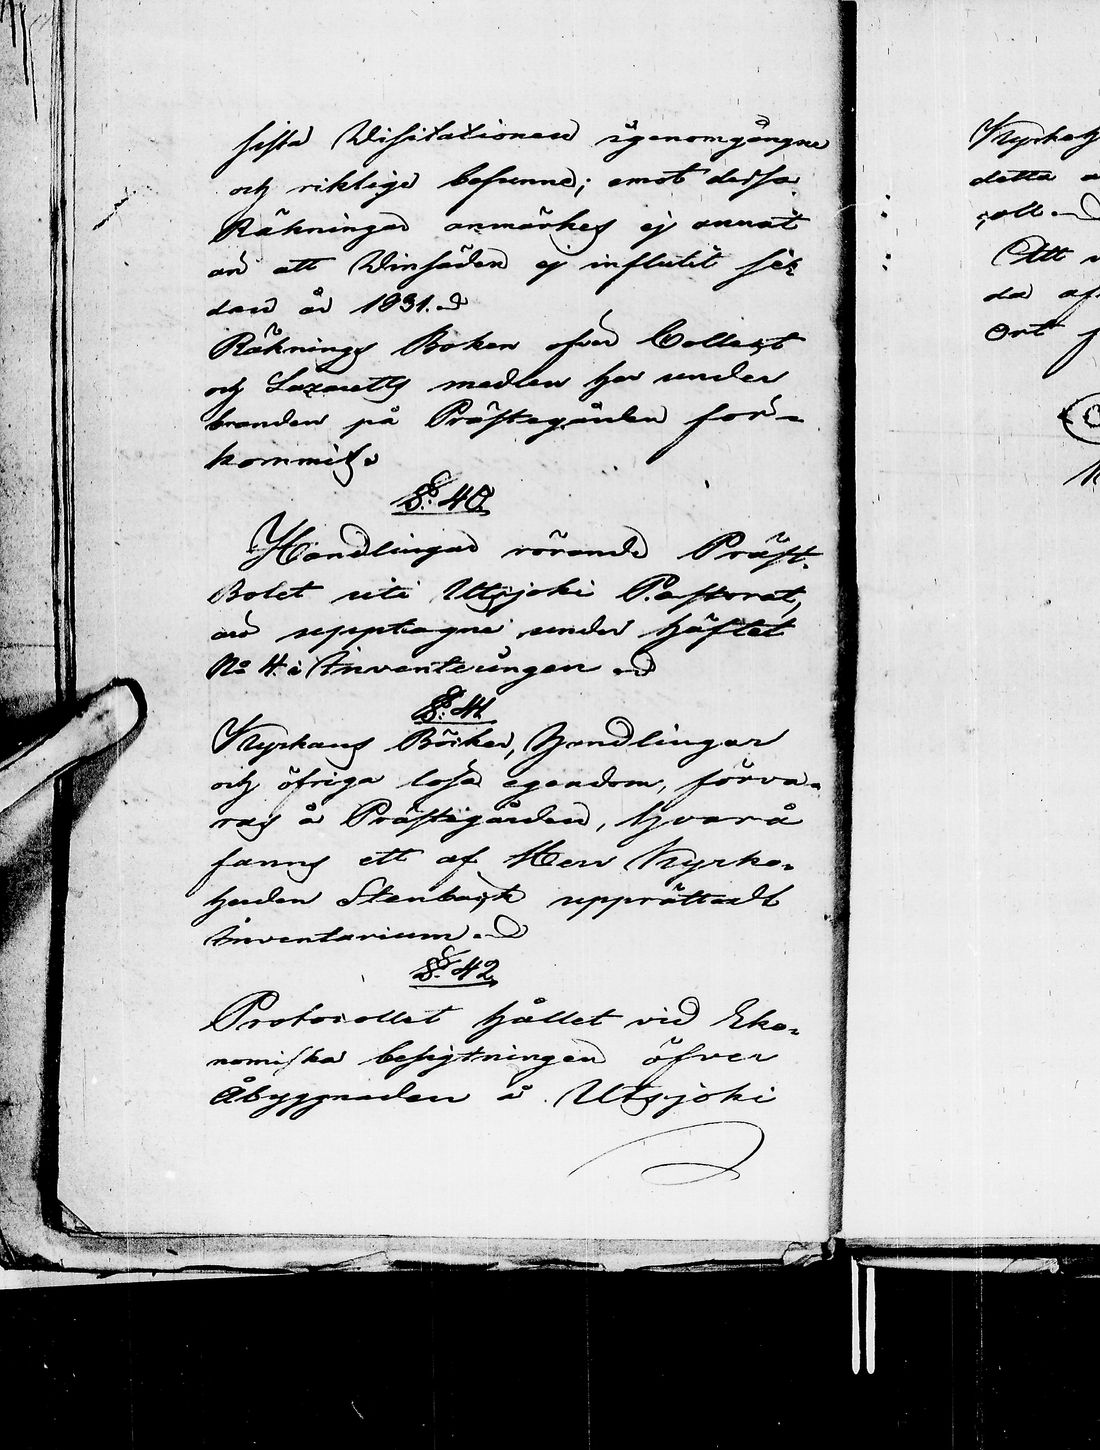 sista Visitationen igenomgångne
och riktige befunne; emot dessa
Räkningar anmärkes ej annat
än att Vinsäden ej influtit se-
dan år 1831.
Räknings Boken öfver Collect
och Lazaretts medlen har under
branden på Prästegården för-
kommit.
§. 40.
Handlingar rörande Präst-
Bolet uti Uttsjoki Pastorat,
äro upptagne under häftet
No 4. i Inventeringen
§. 41.
Kyrkans Böcker, handlingar
och öfriga lösa egendom, förva-
ras å Prästegården, hvarå
fanns ett af Herr Kyrko-
herden Stenbäck upprättadt
Inventarium.
§. 42.
Protocollet hållet vid Eko-
nomiska besigtningen öfver
Åbyggnaden å Utsjoki
Kyrkoh
detta
coll.
Att
da af
Ort